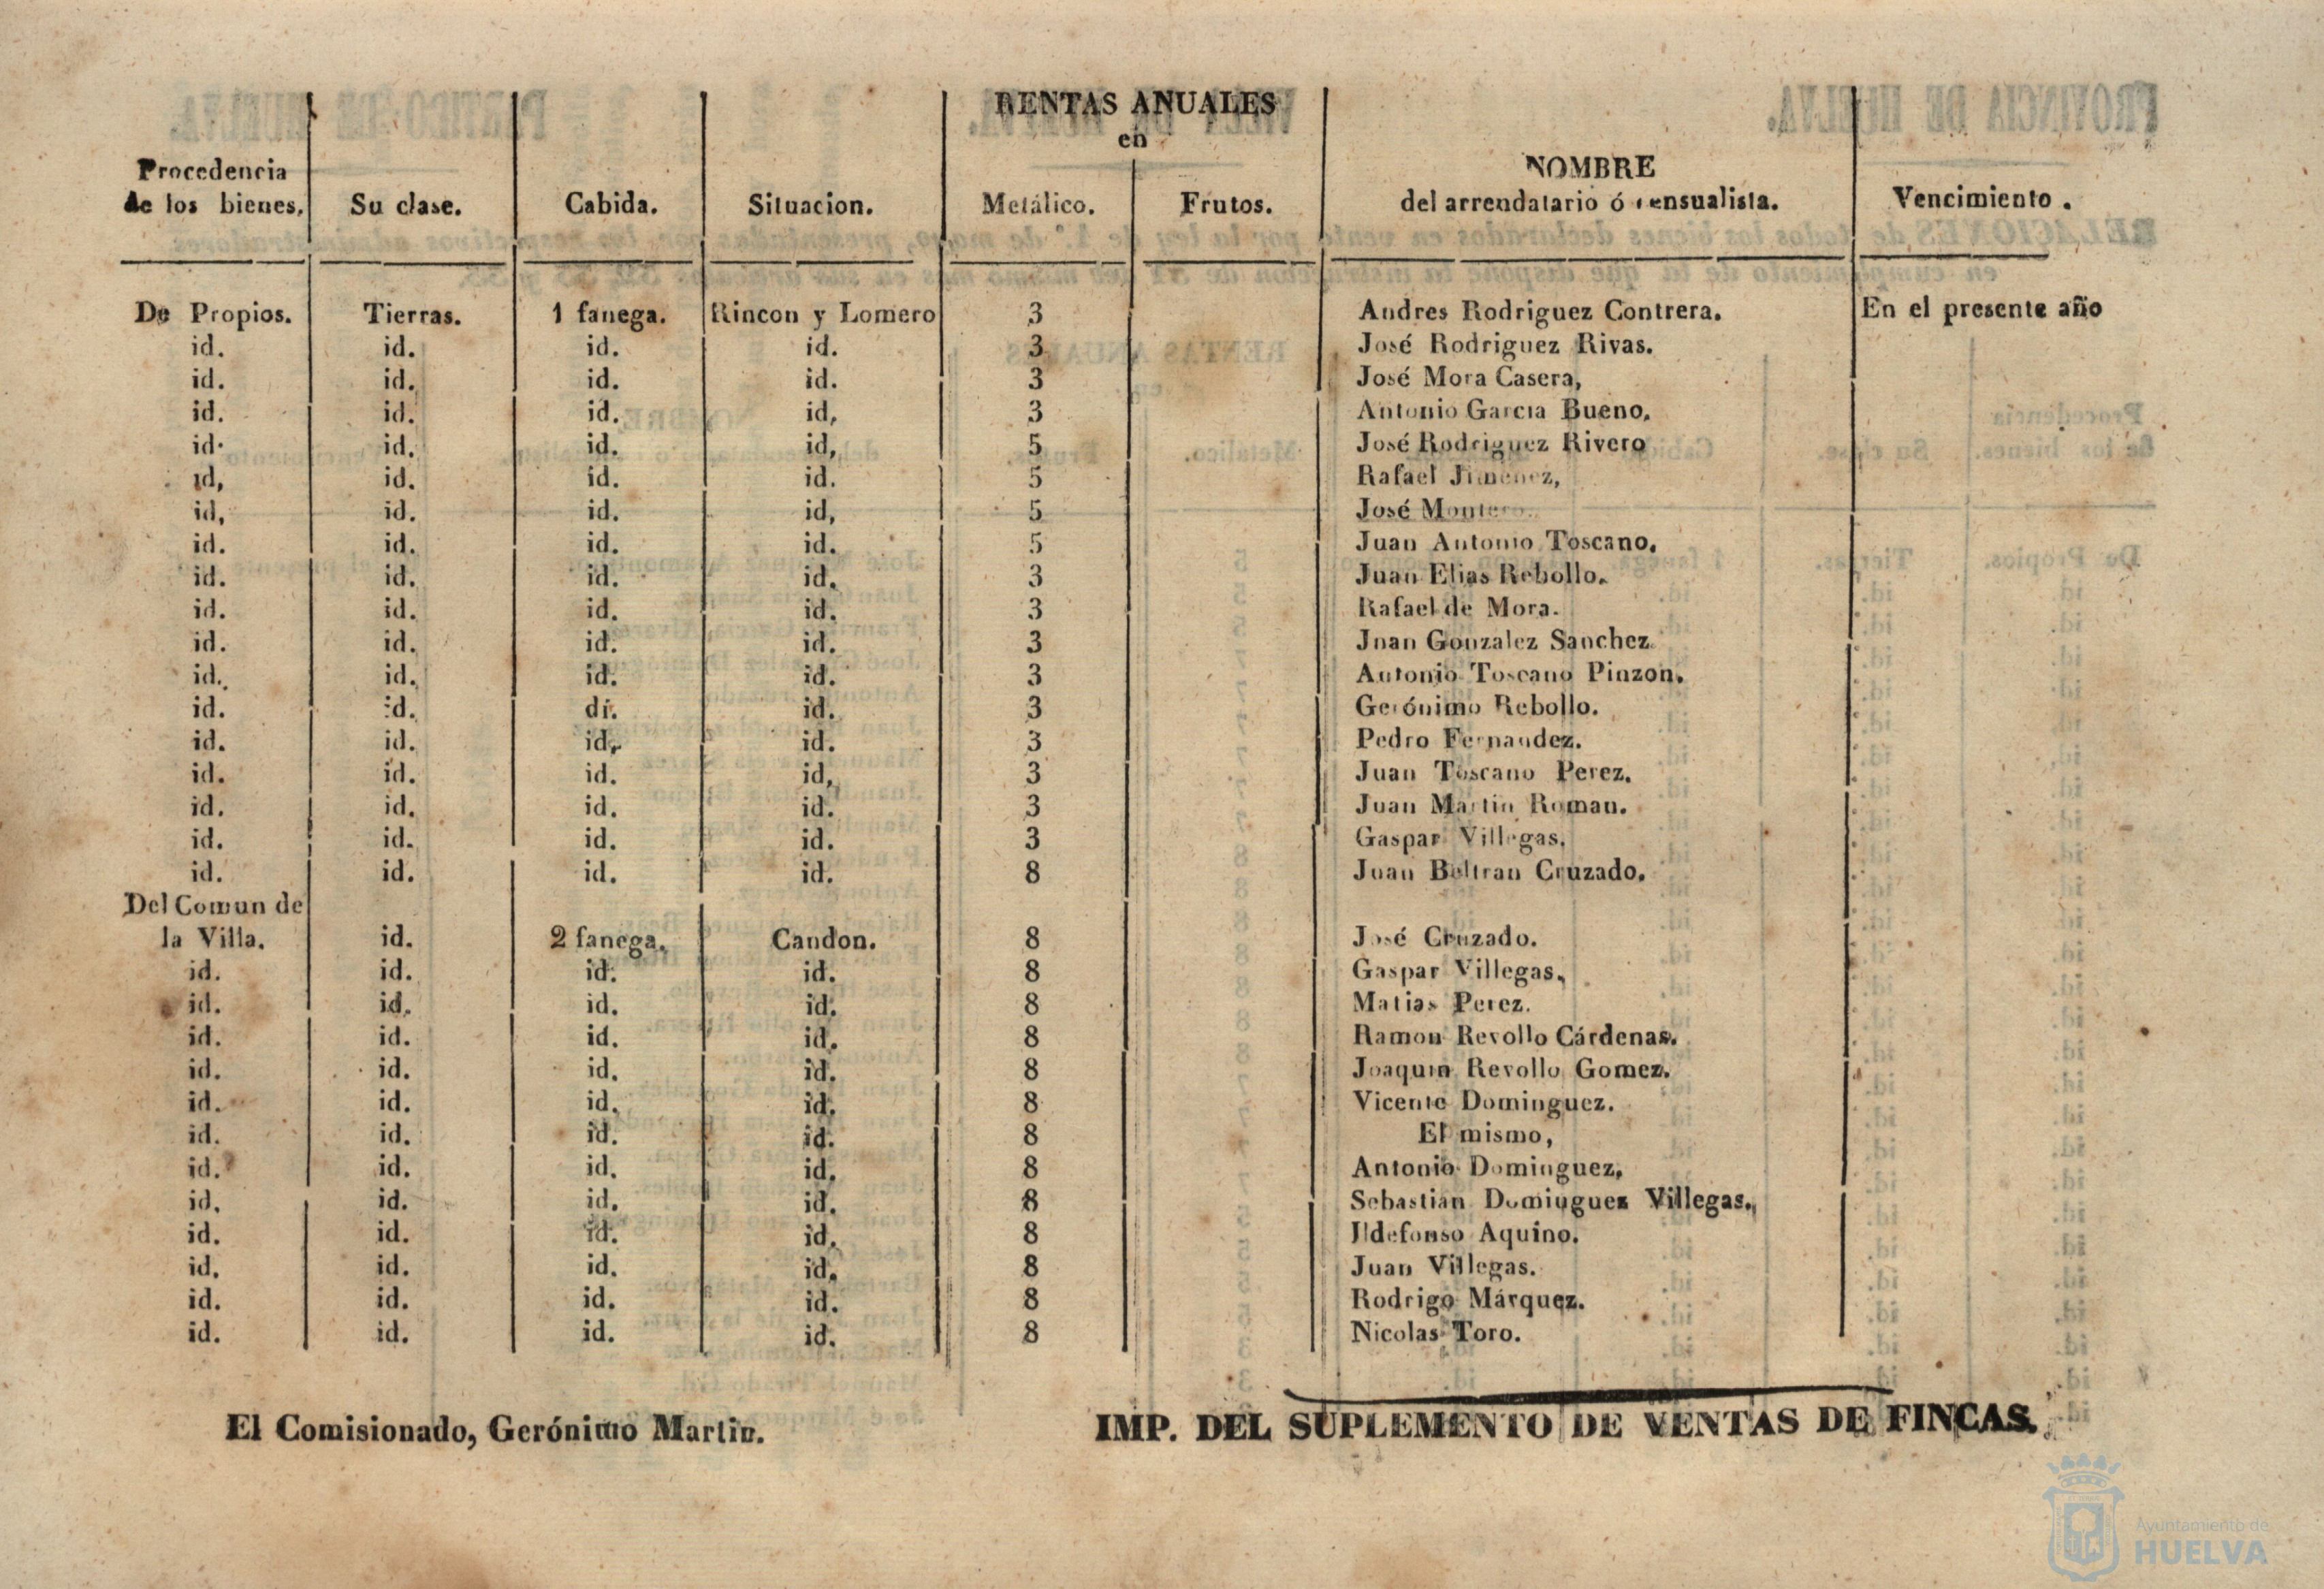 RENTAS ANUALES
en
Procedencia
de los bienes.
Su clase.
Cabida.
Situacion.
Metálico.
Frutos.
NOMBRE
del arrendatario ó censualista.
Vencimiento.
De Propios. Tierras. 1 fanega. Rincon y Lomero 3 Andres Rodriguez Contrera. En el presente año
id. id. id. id. 3 José Rodriguez Rivas.
id. id. id. id. 3 José Mora Casera,
id. id. id. id, 3 Antonio Garcia Bueno.
id. id. id. id, 5 José Rodriguez Rivero
id, id. id. id. 5 Rafael Jimenez,
id, id. id. id, 5 José Montero.
id. id. id. id. 5 Juan Antonio Toscano.
id. id. id. id. 3 Juan Elias Rebollo.
id. id. id. id. 3 Rafael de Mora.
id. id. id. id. 3 Jnan Gonzalez Sanchez.
id. id. id. id. 3 Antonio Toscano Pinzon.
id. id. di. id. 3 Gerónimo Rebollo.
id. id. id, id. 3 Pedro Fernandez.
id. id. id. id, 3 Juan Toscano Perez.
id. id. id. id. 3 Juan Martin Roman.
id. id. id. id. 3 Gaspar Villegas.
id. id. id. id. 8 Juan Beltran Cruzado.
Del Comun de
la Villa. id. 2 fanega. Candon. 8 José Cruzado.
id. id. id. id. 8 Gaspar Villegas.
id. id. id. id. 8 Matias Perez.
id. id. id. id. 8 Ramon Revollo Cárdenas.
id. id. id. id. 8 Joaquin Revollo Gomez.
id. id. id. id. 8 Vicente Dominguez.
id. id. id. id. 8 El mismo,
id. id. id. id. 8 Antonio Dominguez,
id. id. id. id. 8 Sebastian Dominguez Villegas.
id. id. id. id. 8 Ildefonso Aquino.
id. id. id. id. 8 Juan Villegas.
id. id. id. id. 8 Rodrigo Márquez.
id. id. id. id. 8 Nicolas Toro.
El Comisionado, Gerónimo Martin.
IMP. DEL SUPLEMENTO DE VENTAS DE FINCAS.
Ayuntamiento de
HUELVA